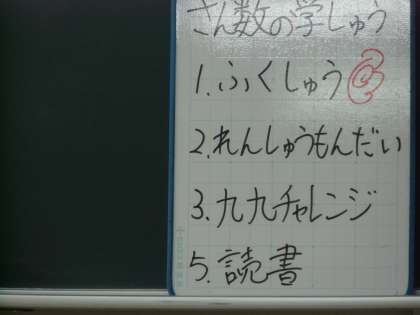 さん数の学しゅう
1.ふくしゅう
2.れんしゅうもんだい
3.九九チャレンジ
5.読書